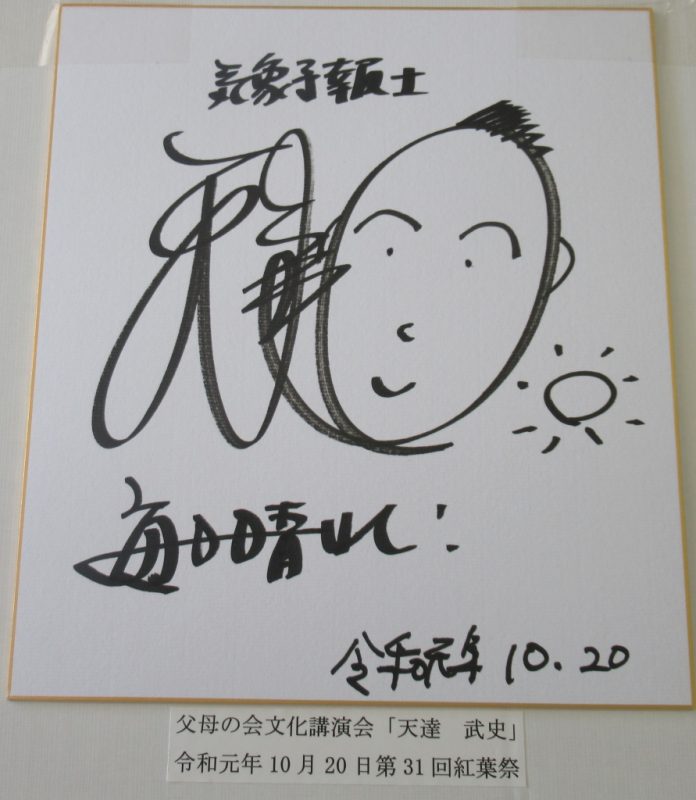 気象予報士
天達
毎日晴れ!
令和元年 10.20
父母の会文化講演会「天達　武史」
令和元年10月20日第31回紅葉祭